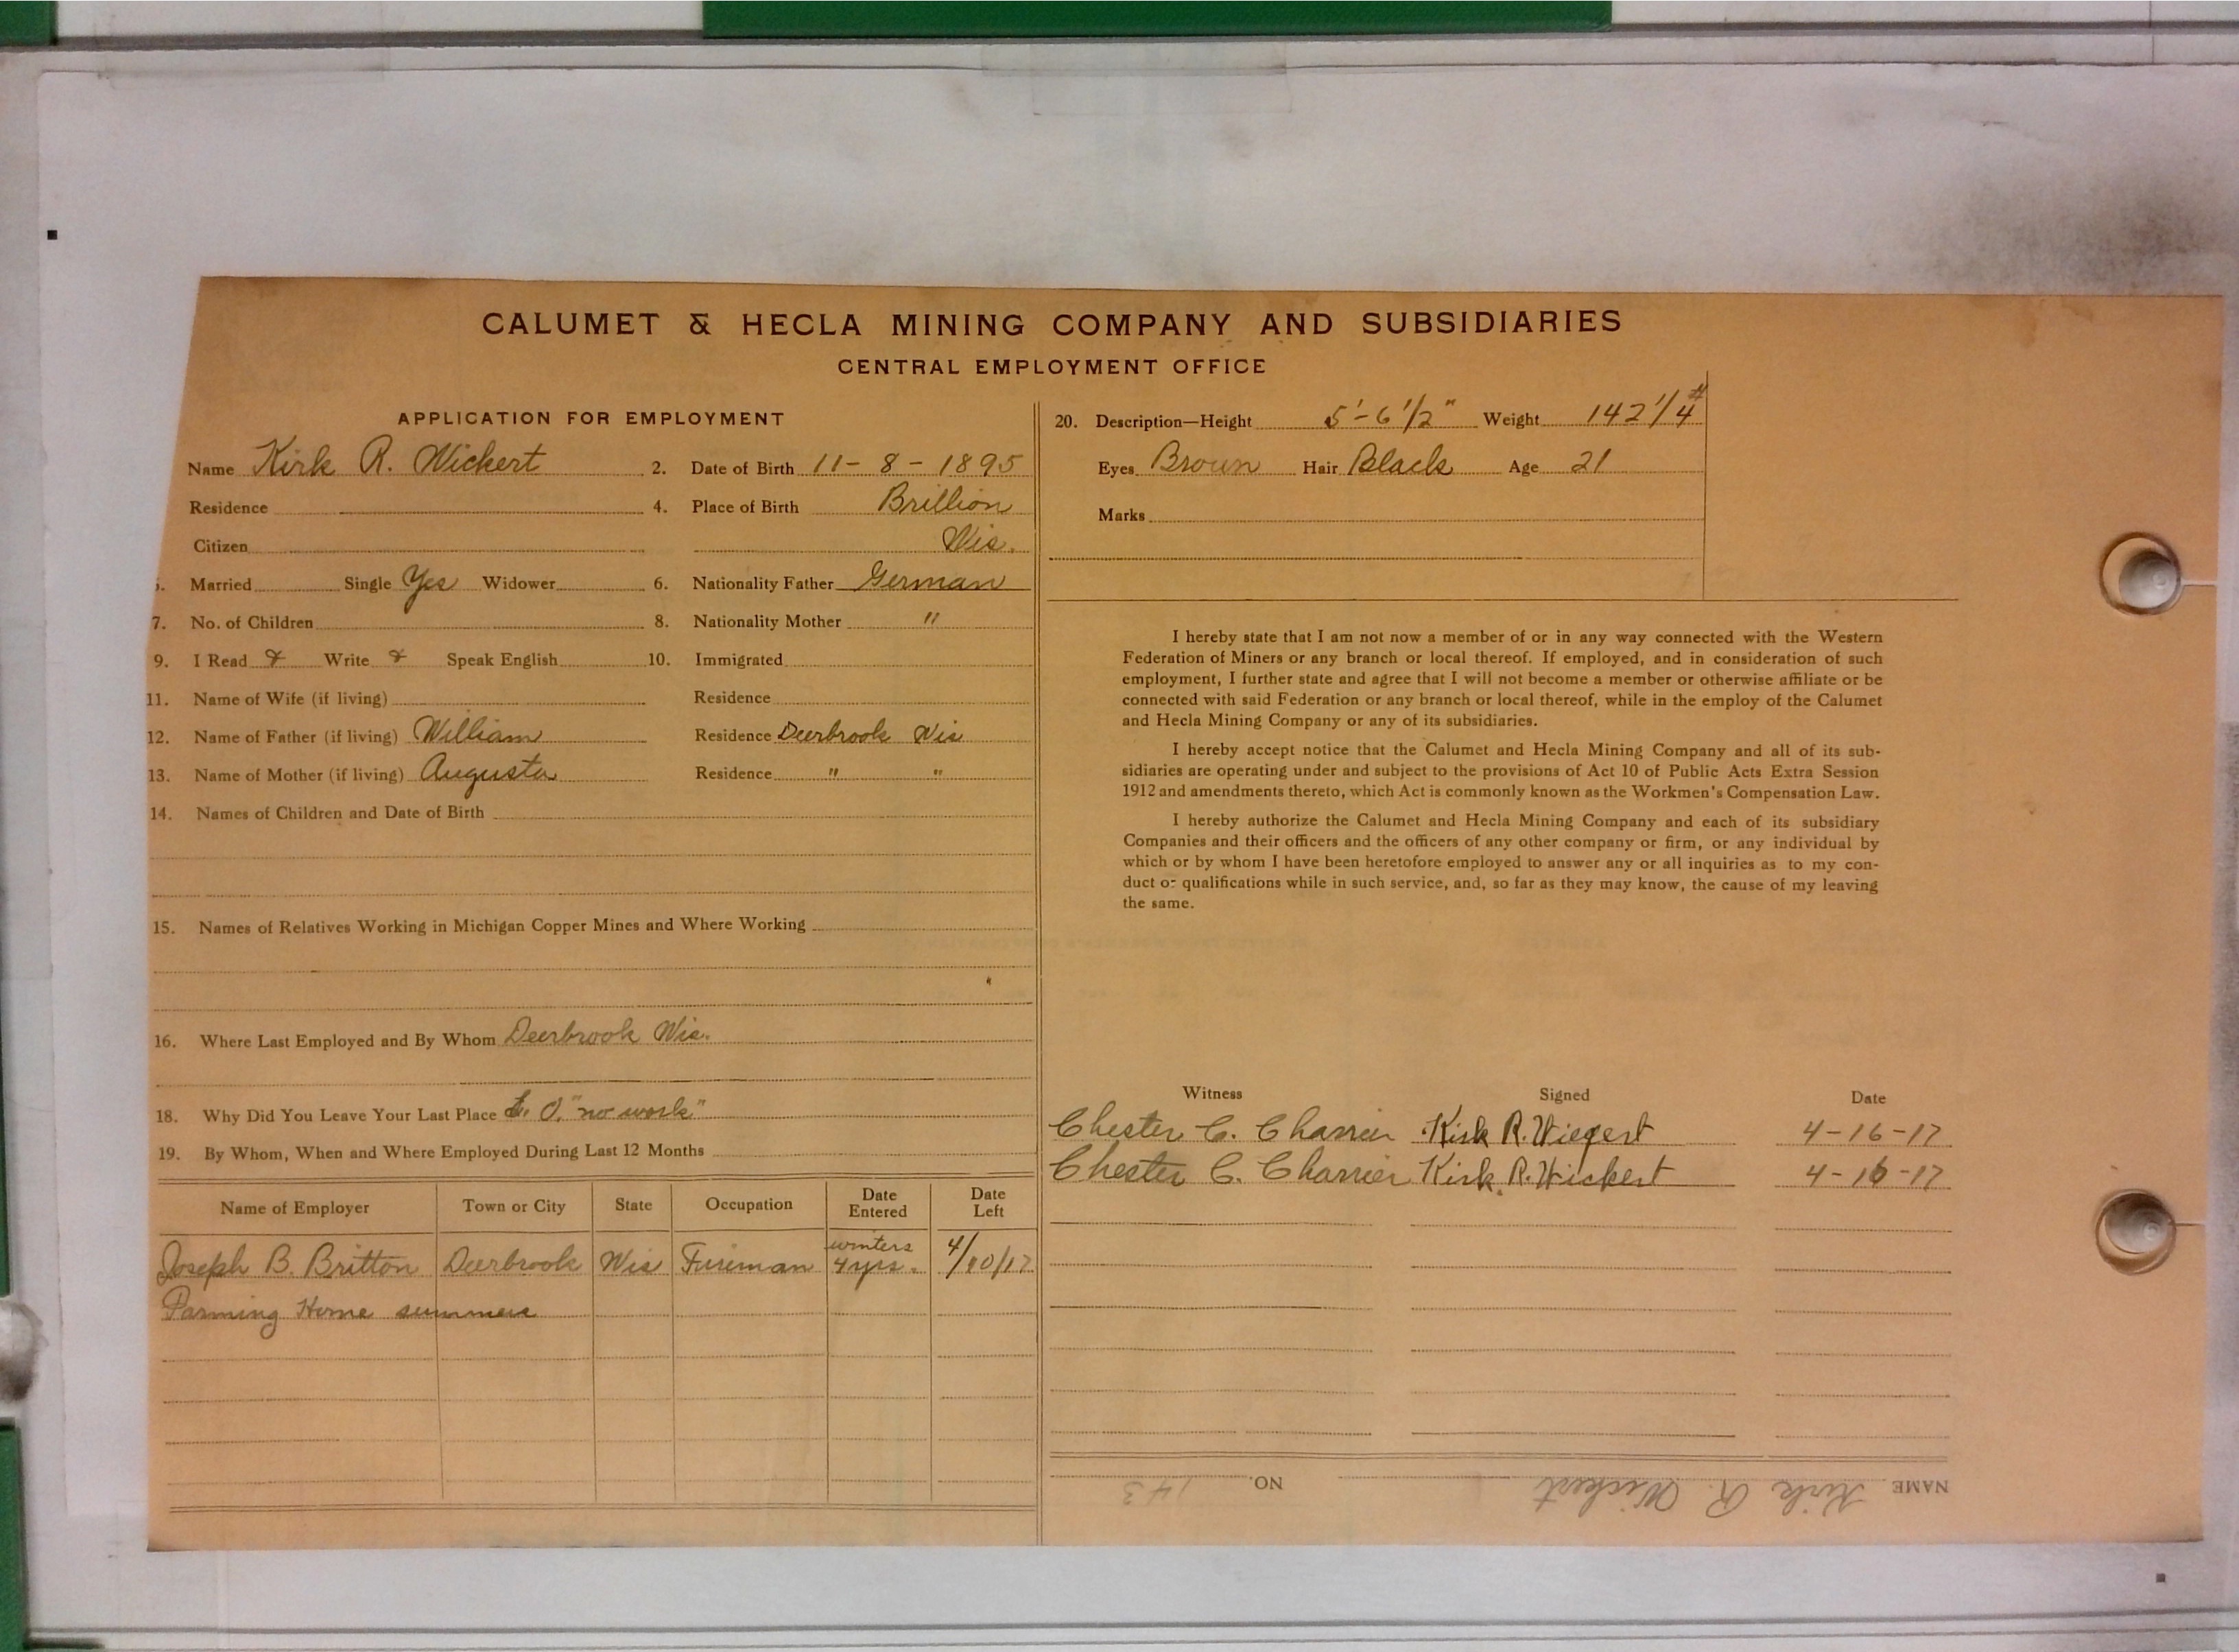 CALUMET & HECLA MINING COMPANY AND SUBSIDIARIES
CENTRAL EMPLOYMENT OFFICE
APPLICATION FOR EMPLOYMENT
Name Kirk R. Wickert 2. Date of Birth 11-8-1895
Residence 4. Place of Birth Brillion
Citizen Wis.
5. Married Single Yes Widower 6. Nationality Father German
7. No. of Children 8. Nationality Mother "
9. I Read & Write & Speak English 10. Immigrated
11. Name of Wife (if living) Residence
12. Name of Father (if living) William Residence Deerbrook Wis
13. Name of Mother (if living) Augusta Residence " "
14. Names of Children and Date of Birth
15. Names of Relatives Working in Michigan Copper Mines and Where Working
16. Where Last Employed and By Whom Deerbrook Wis.
18. Why Did You Leave Your Last Place L. O. "no work"
19. By Whom, When and Where Employed During Last 12 Months
Name of Employer Town or City State Occupation Date Entered Date Left
Joseph B. Britton Deerbrook Wis Fireman winters 4 yrs. 4/10/17
Farming Home summers
20. Description—Height 5'-6 1/2" Weight 142 1/4 #
Eyes Brown Hair Black Age 21
Marks
I hereby state that I am not now a member of or in any way connected with the Western
Federation of Miners or any branch or local thereof. If employed, and in consideration of such
employment, I further state and agree that I will not become a member or otherwise affiliate or be
connected with said Federation or any branch or local thereof, while in the employ of the Calumet
and Hecla Mining Company or any of its subsidiaries.
I hereby accept notice that the Calumet and Hecla Mining Company and all of its sub-
sidiaries are operating under and subject to the provisions of Act 10 of Public Acts Extra Session
1912 and amendments thereto, which Act is commonly known as the Workmen's Compensation Law.
I hereby authorize the Calumet and Hecla Mining Company and each of its subsidiary
Companies and their officers and the officers of any other company or firm, or any individual by
which or by whom I have been heretofore employed to answer any or all inquiries as to my con-
duct or qualifications while in such service, and, so far as they may know, the cause of my leaving
the same.
Witness Signed Date
Chester C. Charrier Kirk R. Wiegert 4-16-17
Chester C. Charrier Kirk R. Wickert 4-16-17
NAME Kirk R. Wickert NO. 143